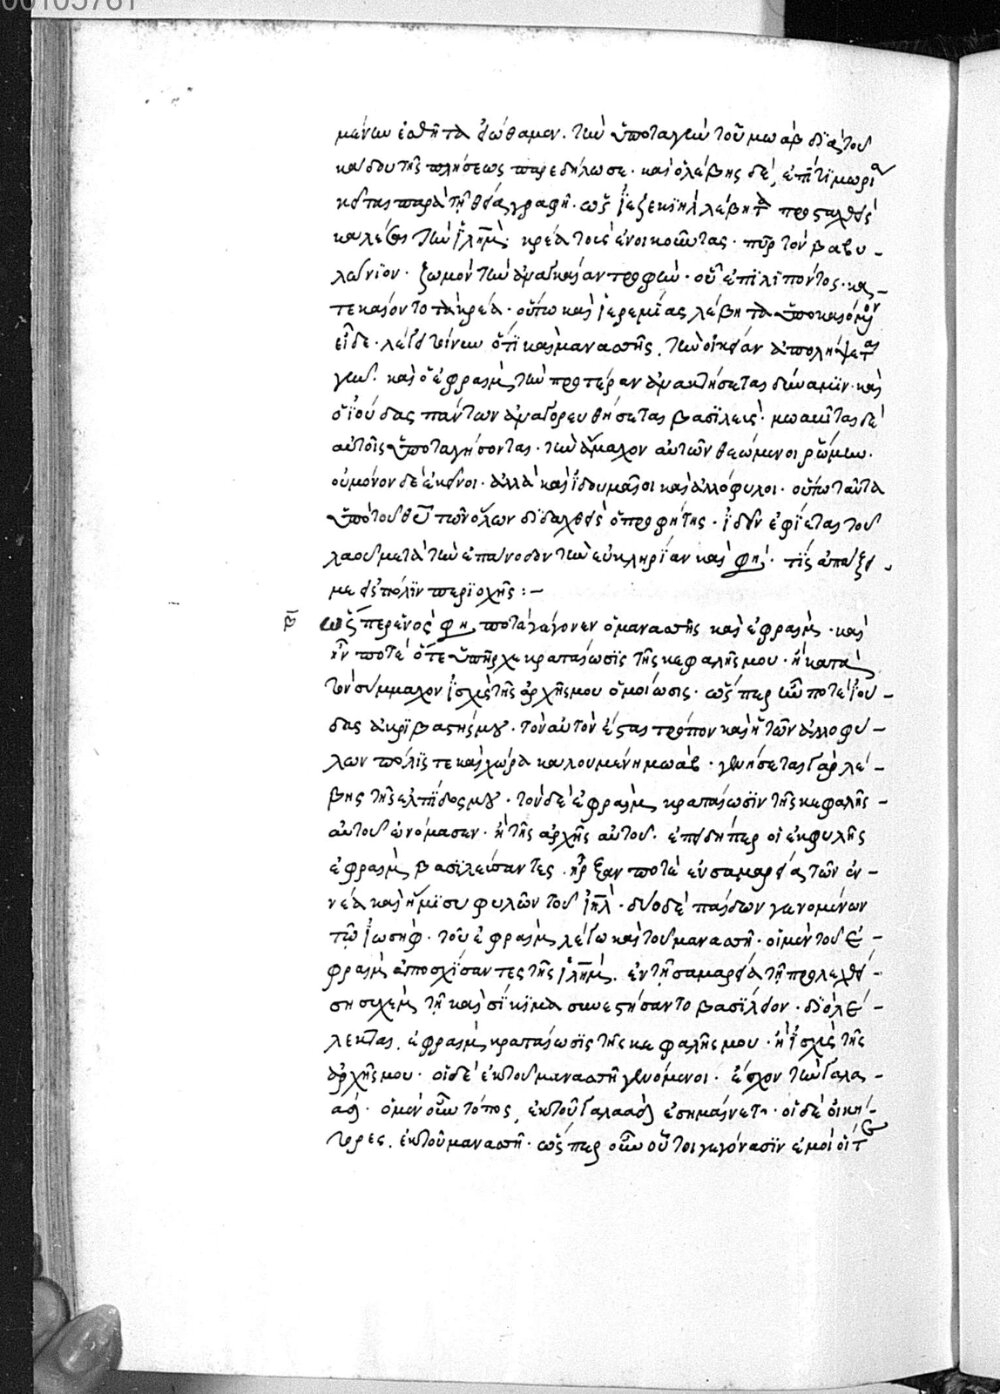 00105761
μένων ἐσθῆτα εἰώθαμεν. τὴν ὑποταγὴν τοῦ μωὰβ διὰ τοῦ
καὶ διὰ τῆς πλήσεως παρεδήλωσε. καὶ ὁ λέβης δὲ, ἐπὶ τιμωρία
κεῖται παρὰ τῇ θεία γραφῆ. ὡς ἰεζεκιὴλ λέβητα προσταχθεὶς
καλέσαι τὴν ἰλημ. κρέα τοὺς ἐνοικοῦντας. πῦρ τὸν βαβυ-
λώνιον. ζωμὸν τὴν ἀναγκαίαν τροφὴν. οὗ ἐπιλιπόντος. κα-
τεκαίοντο τὰ κρέα. οὕτω καὶ ἱερεμίας λέβητα ὑποκαιόμενον
εἶδε. λέγει τοίνυν ὅτι καὶ μανασσῆς, τὴν οἰκείαν ἀπολήψεται
γῆν. καὶ ὁ ἐφραὶμ, τὴν προτέραν ἀνακτήσεται δύναμιν. καὶ
ὁ ἰούδας πάντων ἀναγορευθήσεται βασιλεὺς. μωαβῖται δὲ
αὐτοῖς ὑποταγήσονται. τὴν ἄμαχον αὐτῶν θεώμενοι ῥώμην.
οὐ μόνον δὲ ἐκεῖνοι. ἀλλὰ καὶ ἰδουμαῖοι καὶ ἀλλόφυλοι. οὕτω ταῦτα
ὑπὸ τοῦ θυ τῶν ὅλων διδαχθεὶς ὁ προφήτης. ἰδεῖν ἐφίεται τοῦ
λαοῦ μετὰ τὴν ἐπάνοδον τὴν εὐκληρίαν καὶ φησὶ. τίς ἀπάξει
με εἰς πόλιν περιοχῆς:-
ὥσπερ ἐνὸς φη, ποτὲ γέγονεν ὁ μανασσῆς καὶ ἐφραὶμ. καὶ
ἦν ποτὲ ὅτε ὑπῆρχε κραταίωσις τῆς κεφαλῆς μου. ἢ κατὰ
τὸν σύμμαχον ἰσχὺς τῆς ἀρχῆς μου ὁμοίωσις. ὥσπερ ἦν ποτὲ ἰού-
δας ἀκριβαστής μου. τὸν αὐτὸν ἔσται τρόπον καὶ ἡ τῶν ἀλλοφύ-
λων πόλις τε καὶ χώρα καλουμένη μωὰβ. γενήσεται γὰρ λέ-
βης τῆς ἐλπίδος μου. τὸν δὲ ἐφραὶμ κραταίωσιν τῆς κεφαλῆς
αὐτοῦ ὠνόμασεν. ἢ τῆς ἀρχῆς αὐτοῦ. ἐπειδήπερ οἱ ἐκ φυλῆς
ἐφραὶμ βασιλεύσαντες. ἦρξαν ποτὲ ἐν σαμαρεία τῶν ἐν-
νέα καὶ ἥμισυ φυλῶν τοῦ ιηλ. δύο δὲ παίδων γενομένων
τῷ ἰωσὴφ. τοῦ ἐφραὶμ λέγω καὶ τοῦ μανασσῆ. οἱ μὲν τοῦ ἐ-
φραὶμ ἀποσχίσαντες τῆς ἰλημ. ἐν τῇ σαμαρεία τῇ προλεχθεί-
ση συχεὶμ τῇ καὶ σίκιμα συνεστήσαντο βασίλειον. διὸ λέ-
λεκται, ἐφραὶμ κραταίωσις τῆς κεφαλῆς μου. ἢ ἰσχὺς τῆς
ἀρχῆς μου. οἱ δὲ ἐκ τοῦ μανασσῆ γενόμενοι. ἔσχον τὴν γαλα-
ὰδ. ὁ μὲν οὖν τόπος, ἐκ τοῦ γαλαὰδ ἐσημαίνετο. οἱ δὲ οἰκή-
τορες, ἐκ τοῦ μανασσῆ. ὥσπερ οὖν οὗτοι γεγόνασιν ἐμοὶ